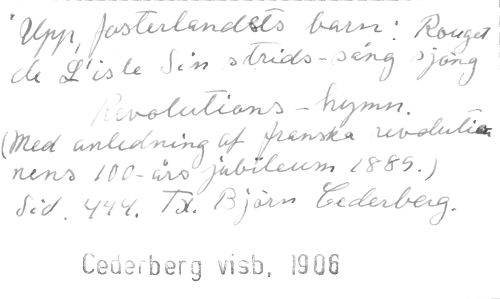 "Upp, fosterlandets barn: Rouget
de L'isle Sin strids-sång sjöng
Revolutions-hymn.
(Med anledning af franska revolutio
nens 100-års jubileum 1889.)
Sid. 444. Tx. Björn Cederberg.
Cederberg visb, 1906